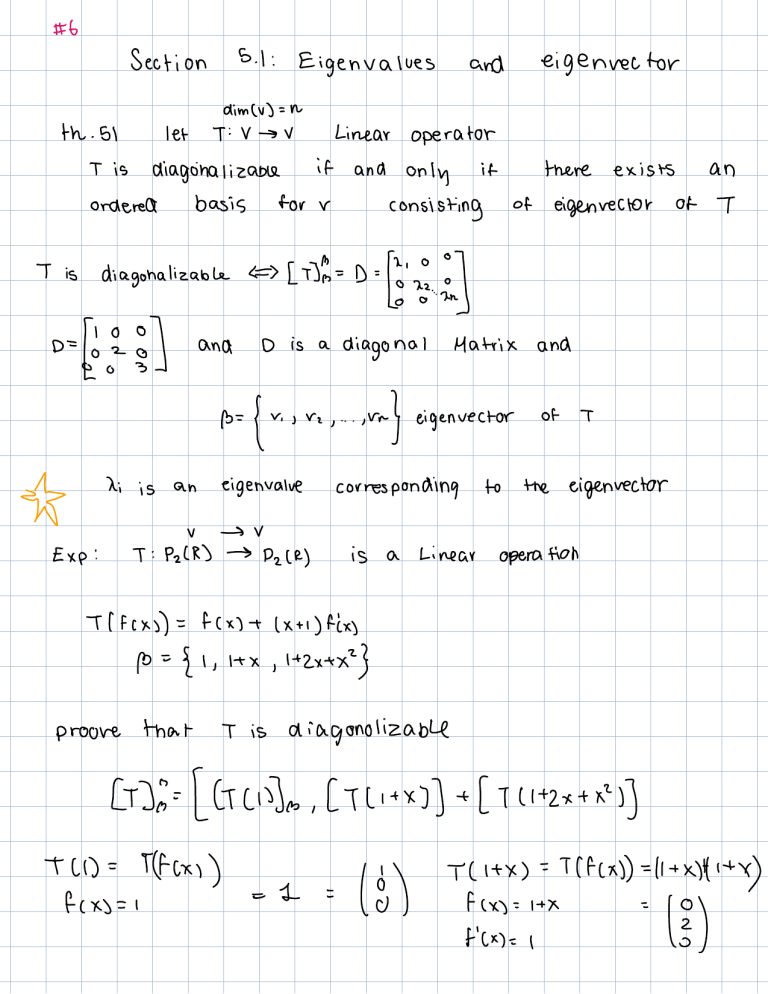 #6
Section 5.1: Eigenvalues and eigenvector
dim(v) = n
th. 51 let T: V → V Linear operator
T is diagonalizable if and only if there exists an
ordered basis for v consisting of eigenvector of T
T is diagonalizable ⇔ [T]ᵝᵦ = D = [λ₁ 0 0
0 λ2.. 0
0 0 λn]
D = [1 0 0
0 2 0
0 0 3] and D is a diagonal Matrix and
β = { v₁, v₂, ..., vn } eigenvector of T
λi is an eigenvalue corresponding to the eigenvector
V → V
Exp: T: P₂(R) → P₂(R) is a Linear operation
T(f(x)) = f(x) + (x+1) f'(x)
β = { 1, 1+x, 1+2x+x² }
proove that T is diagonolizable
[T]ᵝᵦ = [ [T(1)]ᵦ, [T(1+x)] + [T(1+2x+x²)]
T(1) = T(f(x))
f(x) = 1
= 1 = (1
0
0)
T(1+x) = T(f(x)) = (1+x)+(1+x)
f(x) = 1+x
f'(x) = 1
= (0
2
0)